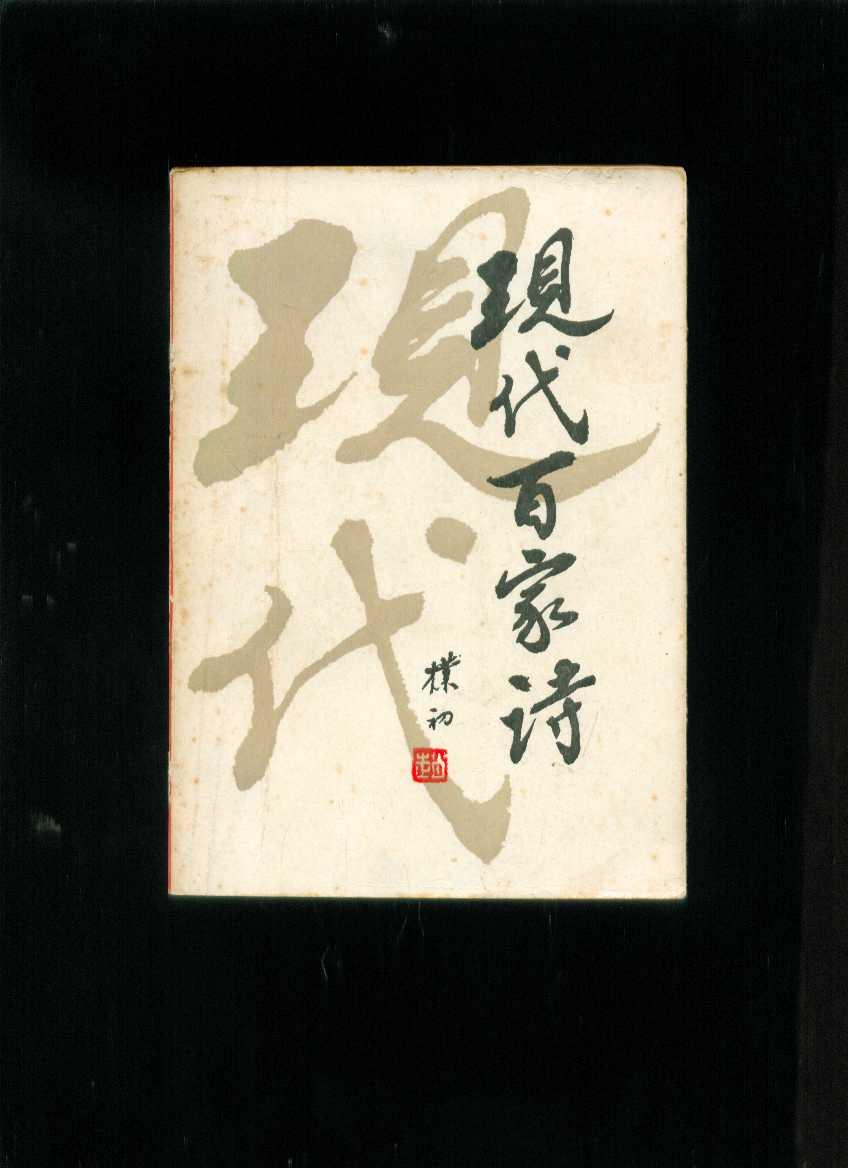 現代
現代百家诗
樸初
趙